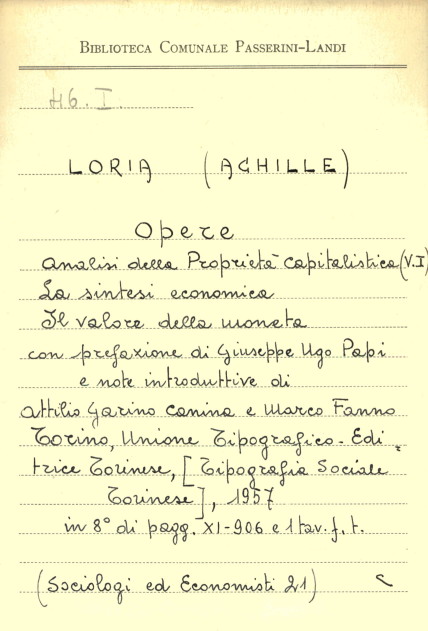 BIBLIOTECA COMUNALE PASSERINI-LANDI
46. I.
LORIA (ACHILLE)
Opere
Analisi della Proprietà capitalistica (V.I)
La sintesi economica
Il valore della moneta
con prefazione di Giuseppe Ugo Papi
e note introduttive di
Attilio Garino Canina e Marco Fanno
Torino, Unione Tipografico-Edi-
trice Torinese, [Tipografia Sociale
Torinese], 1957
in 8° di pagg. XI-906 e 1 tav. f. t.
(Sociologi ed Economisti 21)